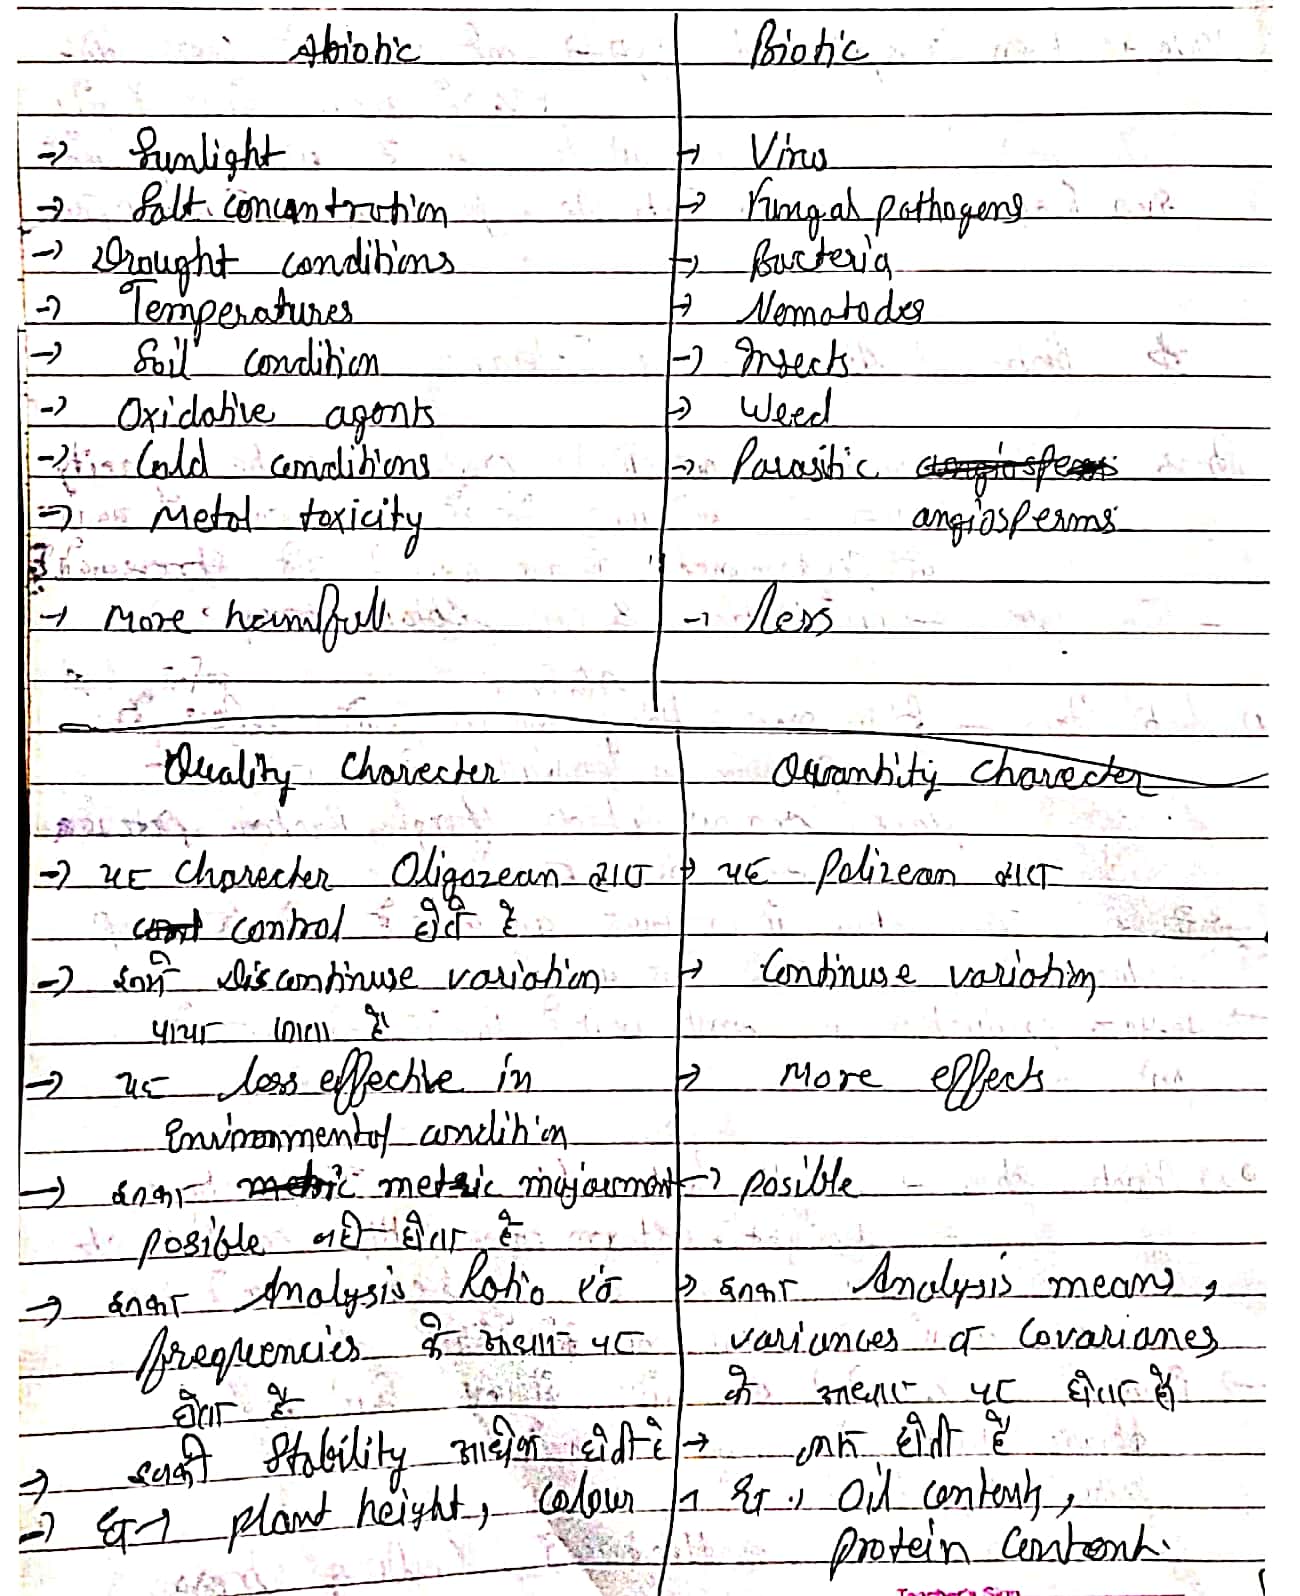 Abiotic Biotic
→ Sunlight → Virus
→ Salt concantration → Fungal pathogens
→ Drought conditions → Bacteria
→ Temperatures → Nematodes
→ Soil condition → Insects
→ Oxidative agents → Weed
→ Cold conditions → Parasitic
→ Metal toxicity angiosperms
→ More harmfull → less
Quality Charecter Quantity Charecter
→ यह Charecter Oligozean द्वारा → यह Polizean द्वारा
control होते है
→ इनमें Discontinuse variation → Continuse variation
पाया जाता है
→ यह less effective in → More effects
Environmental condition
→ इनका metric majourment → posible
posible नही होता है
→ इनका Analysis Ratio एवं → इनका Analysis means,
frequencies के आधार पर variances व Covarianes
होता है के आधार पर होता है
→ इनकी Stability अधिक होती है → कम होती है
→ Ex → plant height, Colour → Ex., Oil content,
protein Content.
Teacher's Sign